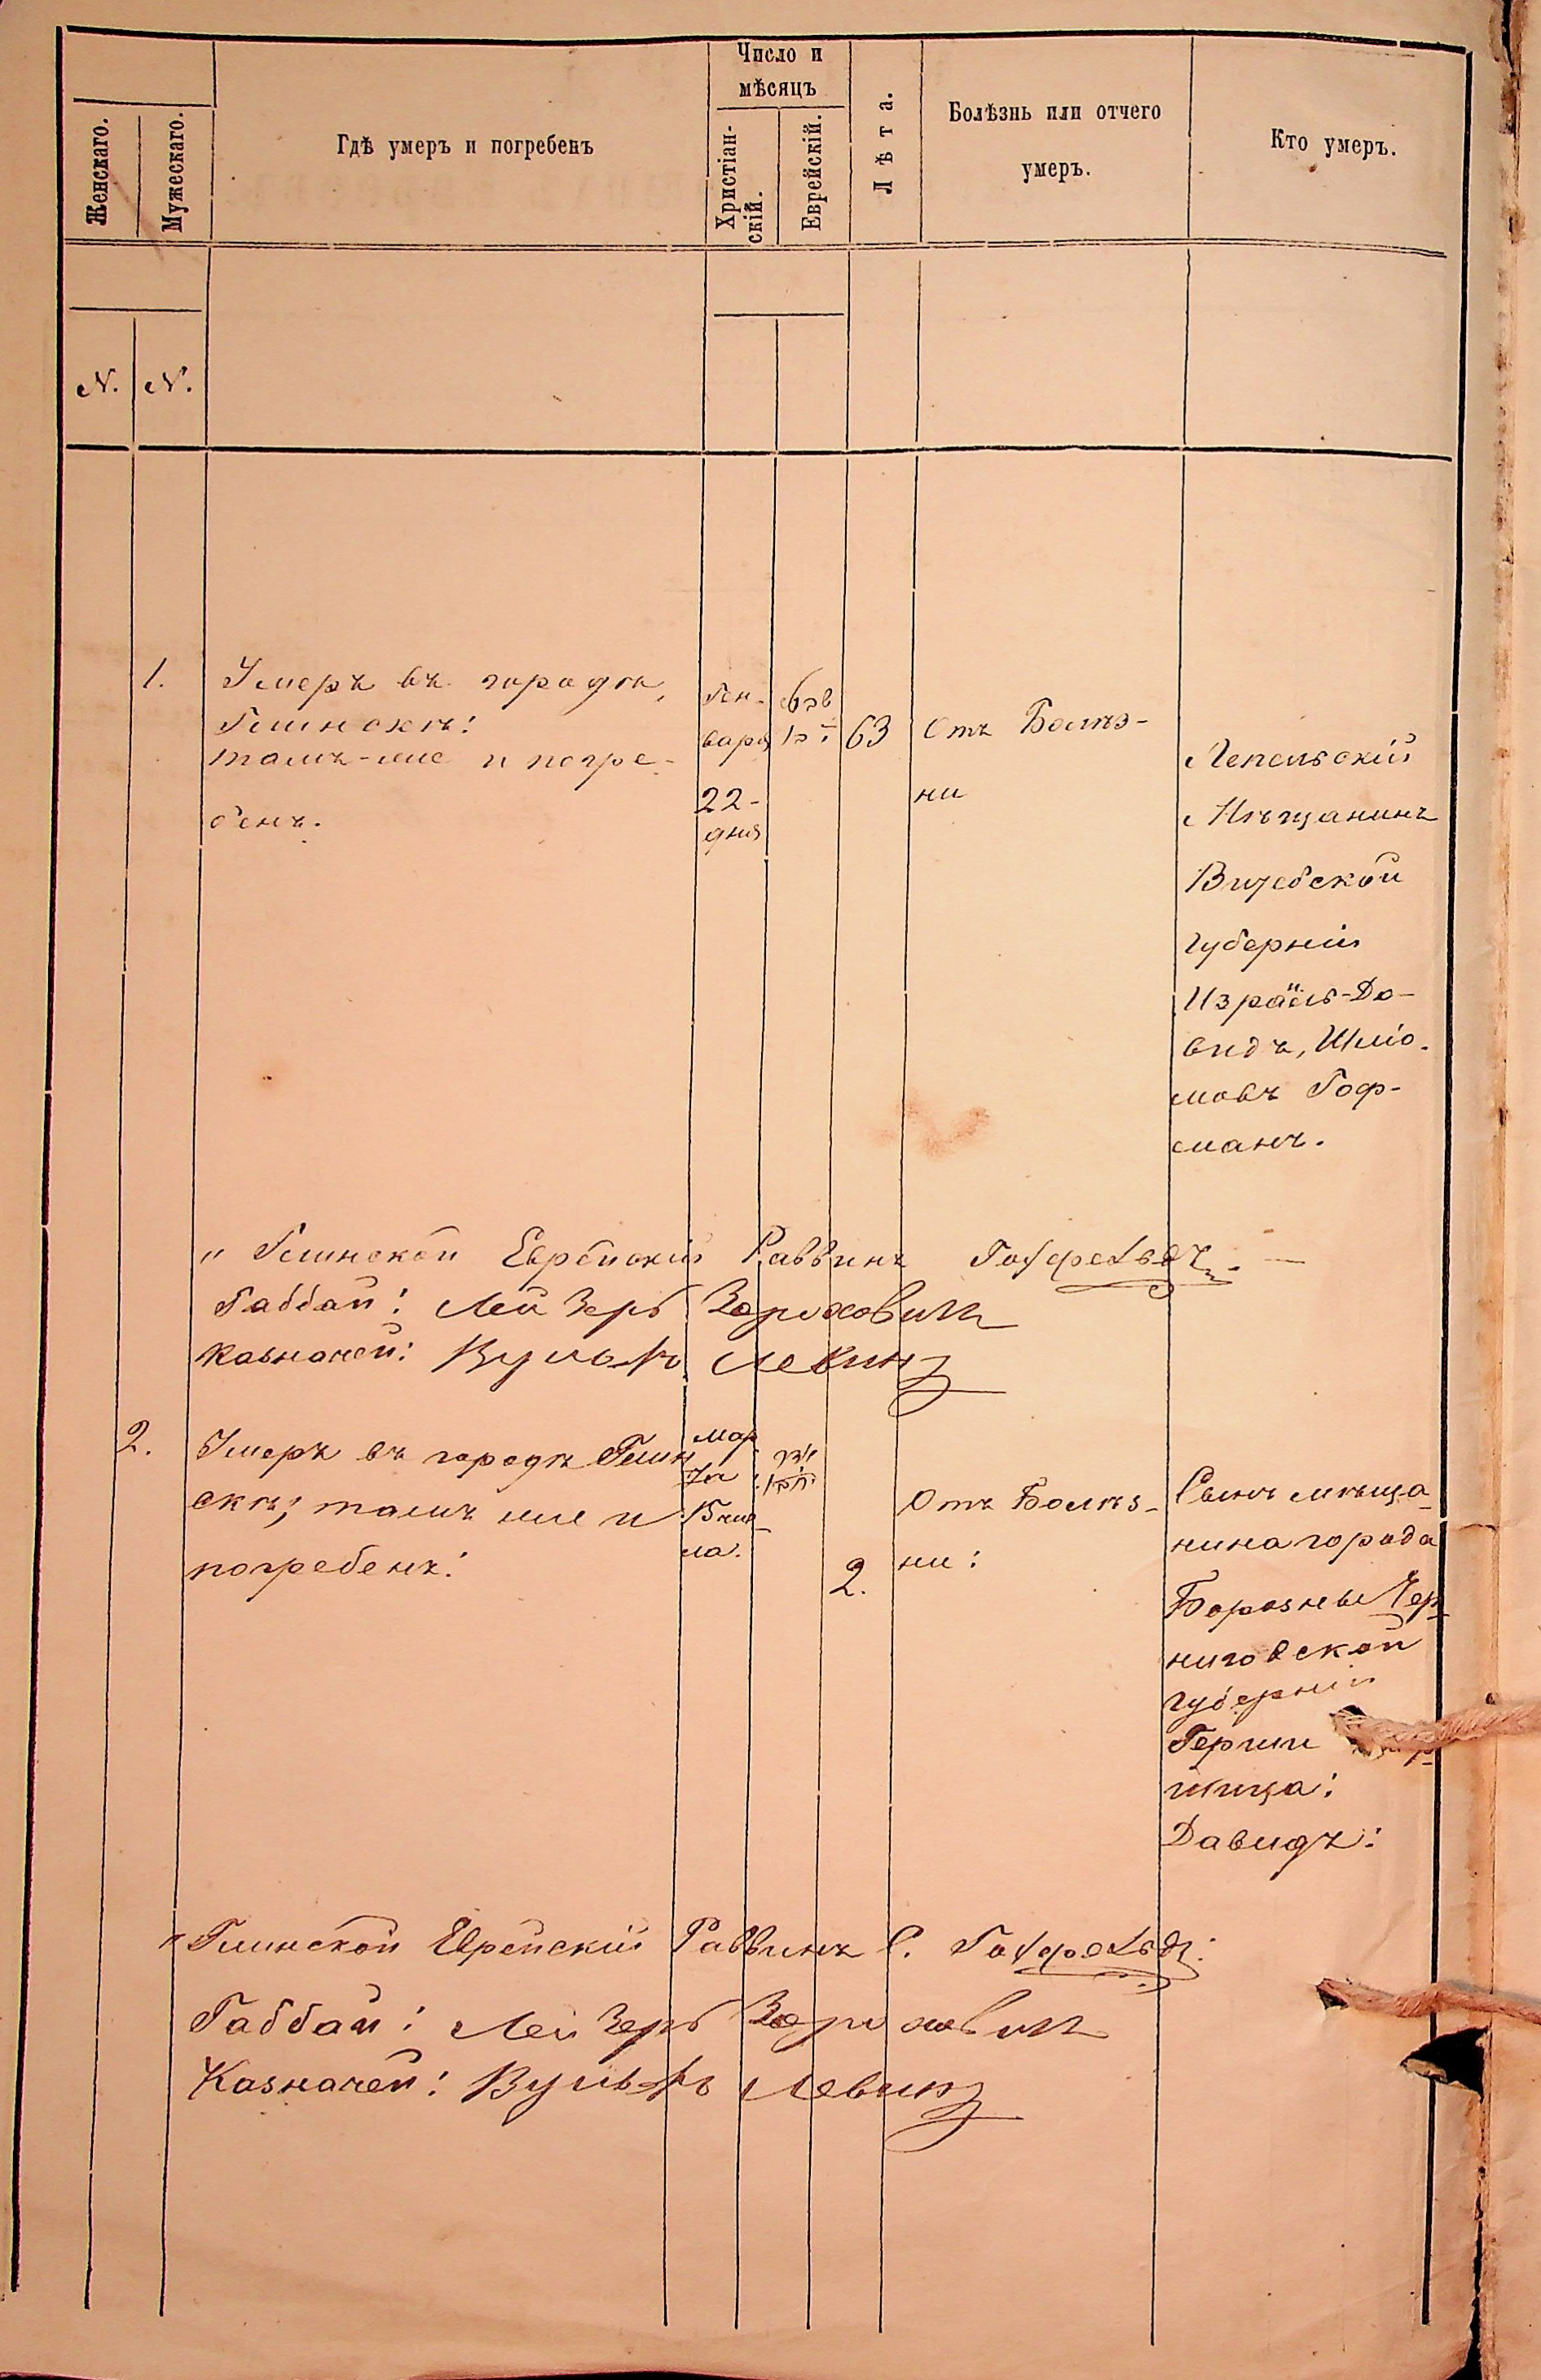 Женскаго.
Мужескаго.
Гдѣ умеръ и погребенъ
Число и
мѣсяцъ
Христіан-
скій.
Еврейскій.
Лѣта.
Болѣзнь или отчего
умеръ.
Кто умеръ.
N. N.
1.
Умеръ въ городѣ,
Глинскѣ:
тамъ-же и погре-
бенъ.
Ген-
варя
22-
дня
63
Отъ Болѣз-
ни
Лепельскій
Мѣщанинъ
Витебской
губерніи
Израйль-До-
видъ, Шліо-
мовъ Гоф-
манъ.
" Глинской Еврейскій Раввинъ
Габбай: Лейзеръ
Казначей: Вульфъ Левинъ
2.
Умеръ въ городѣ Глин
скѣ; тамъ же и
погребенъ:
мар
та
15 чис-
ла.
2.
Отъ Болѣз-
ни:
Сынъ мѣща-
нина города
Борозны Чер-
ниговской
губерніи
Герши
шица:
Давидъ:
" Глинской Еврейскій Раввинъ С.
Габбай: Лейзеръ
Казначей: Вульфъ Левинъ